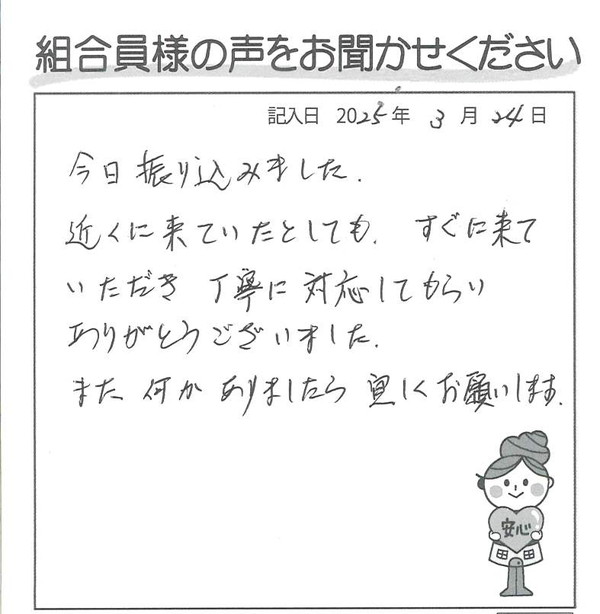 組合員様の声をお聞かせください
記入日 2025年 3月 24日
今日振り込みました.
近くに来ていたとしても. すぐに来て
いただき 丁寧に対応してもらい
ありがとうございました.
また 何か ありましたら 宜しくお願いします.
安心